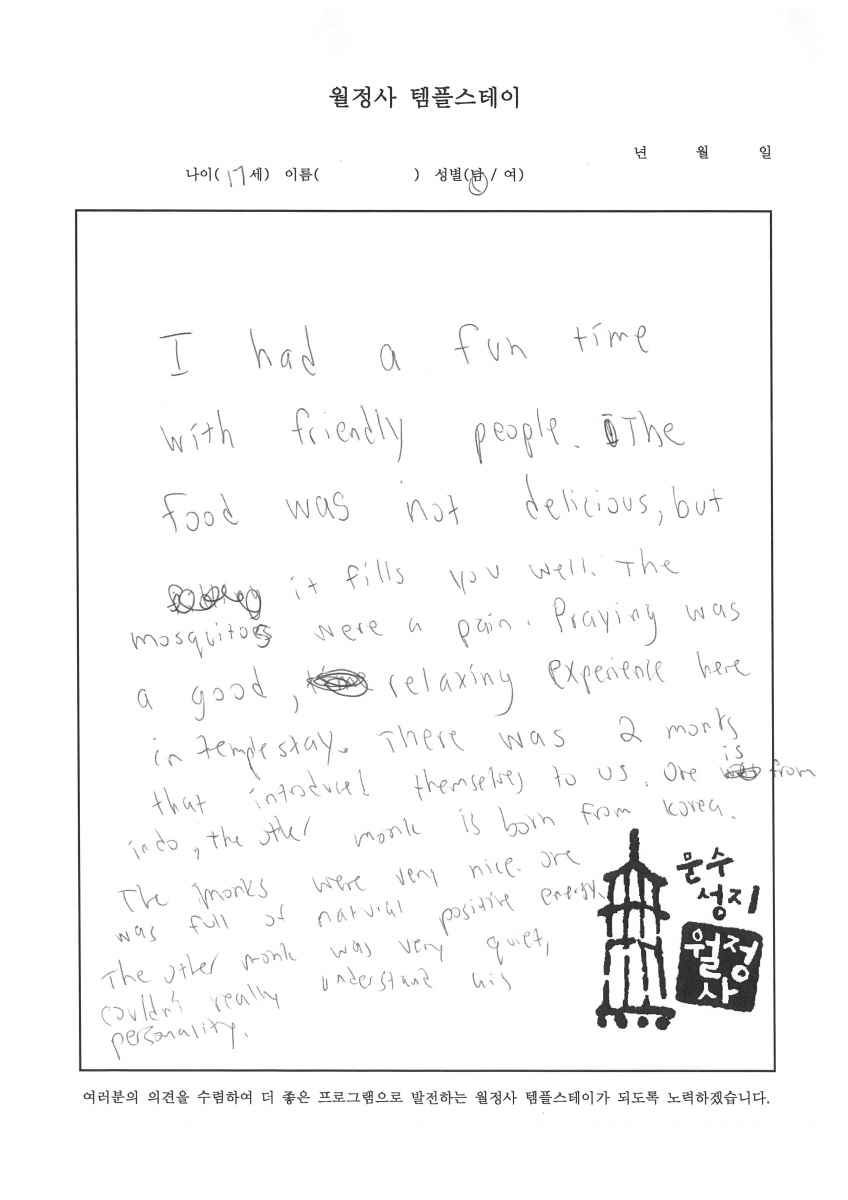 월정사 템플스테이
년 월 일
나이( 17 세) 이름( ) 성별(남 / 여)
I had a fun time
with friendly people. The
food was not delicious, but
it fills you well. The
mosquitoes were a pain. Praying was
a good, relaxing experience here
in temple stay. There was 2 monks
that introduced themselves to us. One is from
indo, the other monk is born from Korea.
The monks were very nice. One
was full of natural positive energy.
The other monk was very quiet,
couldn't really understand his
personality.
문수
성지
월정
사
여러분의 의견을 수렴하여 더 좋은 프로그램으로 발전하는 월정사 템플스테이가 되도록 노력하겠습니다.